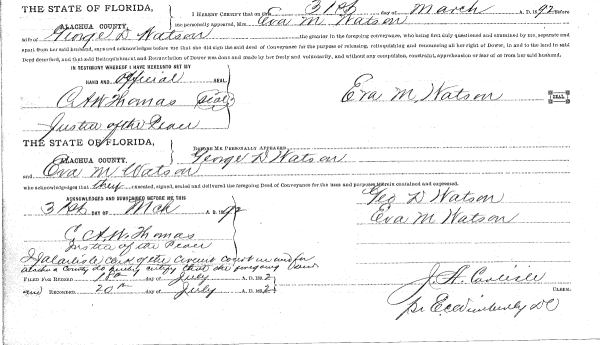 THE STATE OF FLORIDA,
ALACHUA COUNTY.
I HEREBY CERTIFY that on this 31st day of March A. D. 1892 before
me personally appeared, Mrs. Eva M Watson
wife of George D Watson the grantor in the foregoing conveyance, who being first duly questioned and examined by me, separate and
apart from her said husband, says and acknowledges before me that she did sign the said deed of Conveyance for the purpose of releasing, relinquishing and renouncing all her right of Dower, in and to the land in said
Deed described, and that said Relinquishment and Renunciation of Dower was done and made by her freely and voluntarily, and without any compulsion, constraint, apprehension or fear of or from her said husband.
IN TESTIMONY WHEREOF I HAVE HEREUNTO SET MY
HAND AND official SEAL.
C. A. W. Thomas (Seal) Eva M. Watson SEAL
Justice of the Peace
THE STATE OF FLORIDA,
ALACHUA COUNTY.
BEFORE ME PERSONALLY APPEARED
George D Watson
and Eva M Watson
who acknowledges that they executed, signed, sealed and delivered the foregoing Deed of Conveyance for the uses and purposes herein contained and expressed.
ACKNOWLEDGED AND SUBSCRIBED BEFORE ME THIS
31st DAY OF Mch A. D. 1892
Geo D Watson
Eva M Watson
C. A. W. Thomas
Justice of the Peace
I J A Carlisle Clerk of the Circuit Court in and for
Alachua County do hereby certify that the foregoing was
FILED FOR RECORD day of July A. D. 1892
and RECORDED 20th day of July A. D. 1892
J. A. Carlisle CLERK.
pr E. C. Wimberly DC